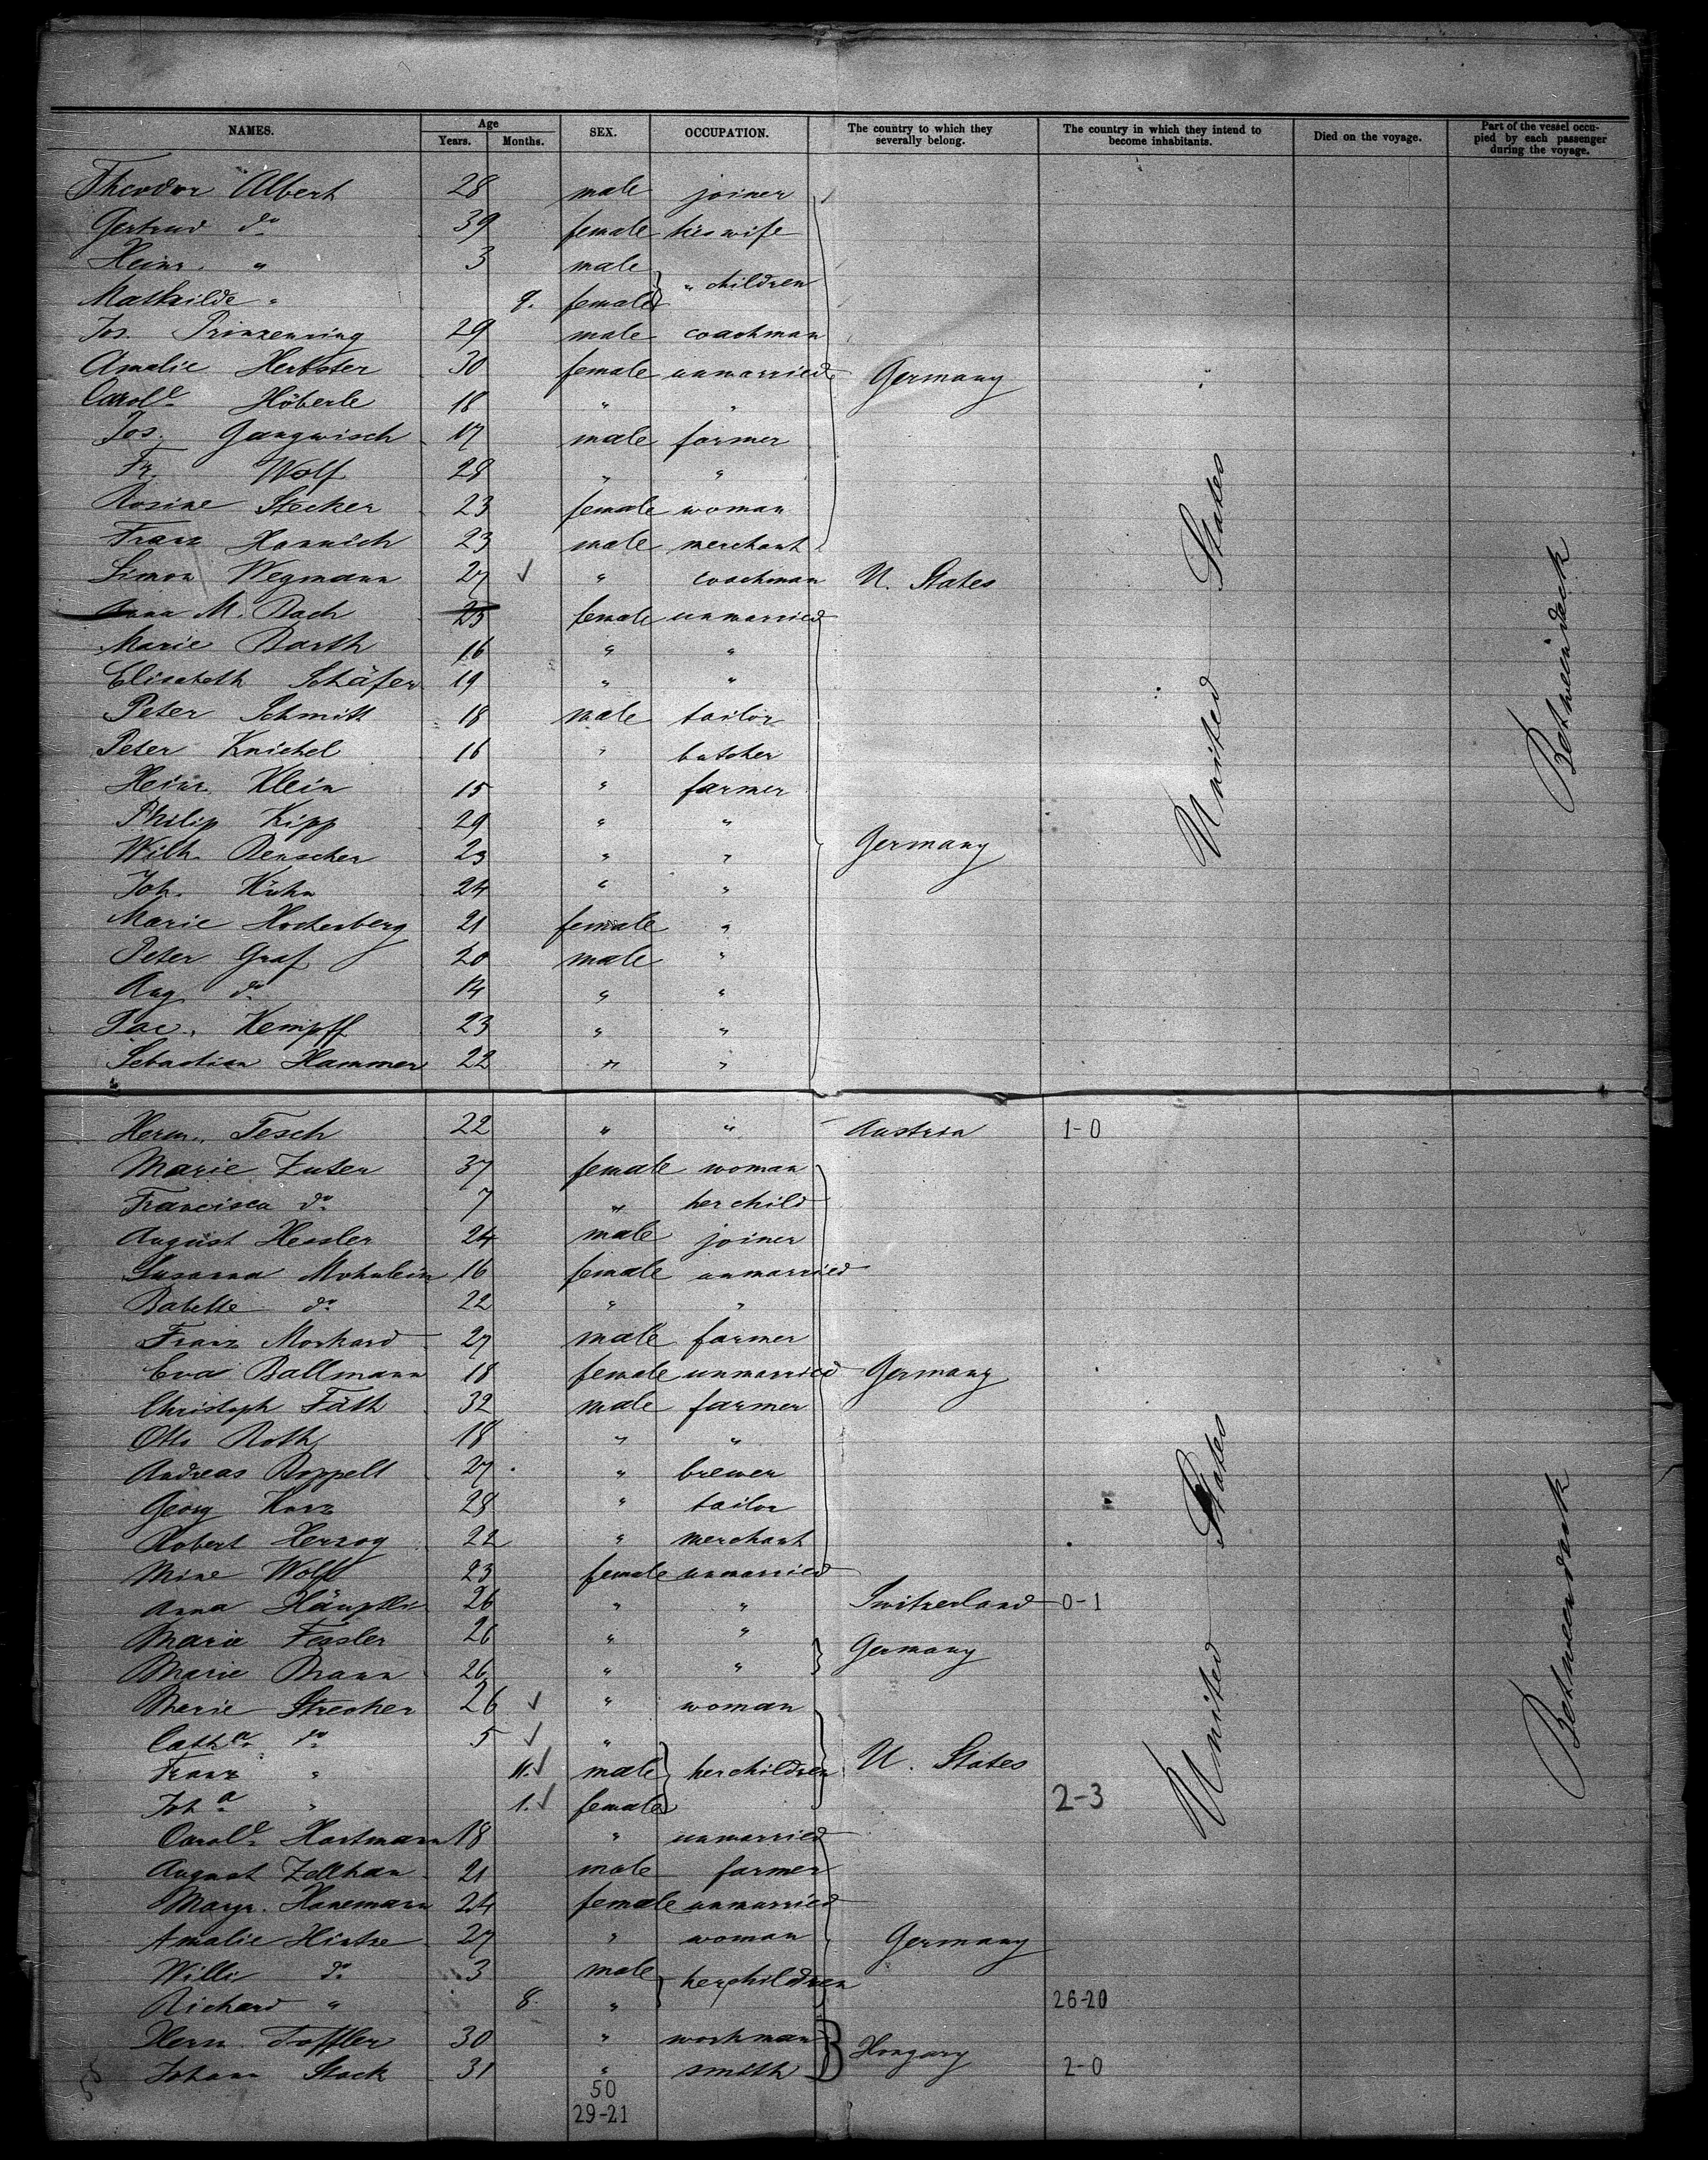 NAMES. Age Years. Months. SEX. OCCUPATION. The country to which they severally belong. The country in which they intend to become inhabitants. Died on the voyage. Part of the vessel occupied by each passenger during the voyage.
Theodor Albert 28 male joiner
Gertrud do 39 female his wife
Heinr. " 3 male
Mathilde " 9. female " children
Jos. Prinzenring 29 male coachman
Amalie Herbster 30 female unmarried Germany
Carole Höberle 18 " "
Jos. Gangwisch 17 male farmer
Fr. Wolf 28 " "
Rosine Stecker 23 female woman
Franz Hannich 23 male merchant
Simon Wegmann 27 ✓ " coachman U. States
Anna M. Bach 25 female unmarried
Marie Barth 16 " "
Elisabeth Schäfer 19 " "
Peter Schmitt 18 male tailor
Peter Knichel 16 " butcher
Heinr. Klein 15 " farmer
Philip Kipp 29 " "
Wilh. Renscher 23 " " Germany
Joh. Kuhn 24 " "
Marie Hochenberg 21 female "
Peter Graf 20 male "
Aug. do 14 " "
Jac. Kempff 23 " "
Sebastian Hammer 22 " "
United States
Betweendeck
Herm. Tesch 22 " " Austria 1-0
Marie Zuter 37 female woman
Francisca do 7 " her child
August Hessler 24 male joiner
Susanna Mohnlein 16 female unmarried
Babette do 22 " "
Franz Morhard 27 male farmer
Eva Ballmann 18 female unmarried Germany
Christoph Fäth 32 male farmer
Otto Roth 18 " "
Andreas Boppelt 27 " brewer
Georg Kurz 28 " tailor
Robert Herzog 22 " merchant
Mine Wolf 23 female unmarried
Anna Häuptli 26 " " Switzerland 0-1
Maria Fessler 26 " " Germany
Marie Braun 26 " "
Marie Strecker 26 ✓ " woman
Catha do 5 ✓ "
Franz " 11. ✓ male her children U. States
Joha " 1. ✓ female 2-3
Carole Hartmann 18 " unmarried
August Zellhan 21 male farmer
Margr. Hanemann 24 female unmarried
Amalie Hintze 27 " woman Germany
Willi do 3 male her children
Richard " 8. " 26-20
Herm. Toffler 30 " workman Hongary
Johann Stock 31 " smith 2-0
United States
Betweendeck
50
29-21